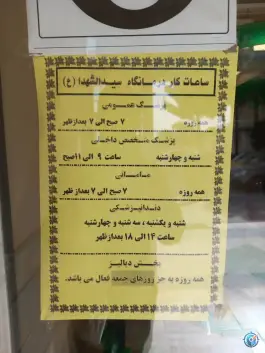 ساعات کار درمانگاه سیدالشهدا (ع)
پزشک عمومی
همه روزه ۷ صبح الی ۷ بعدازظهر
پزشک متخصص داخلی
شنبه و چهارشنبه ساعت ۹ الی ۱۱ صبح
مامائی
همه روزه ۷ صبح الی ۷ بعدازظهر
دندانپزشکی
شنبه و یکشنبه ، سه شنبه و چهارشنبه
ساعت ۱۴ الی ۱۸ بعدازظهر
بخش دیالیز
همه روزه به جز روزهای جمعه فعال می باشد.